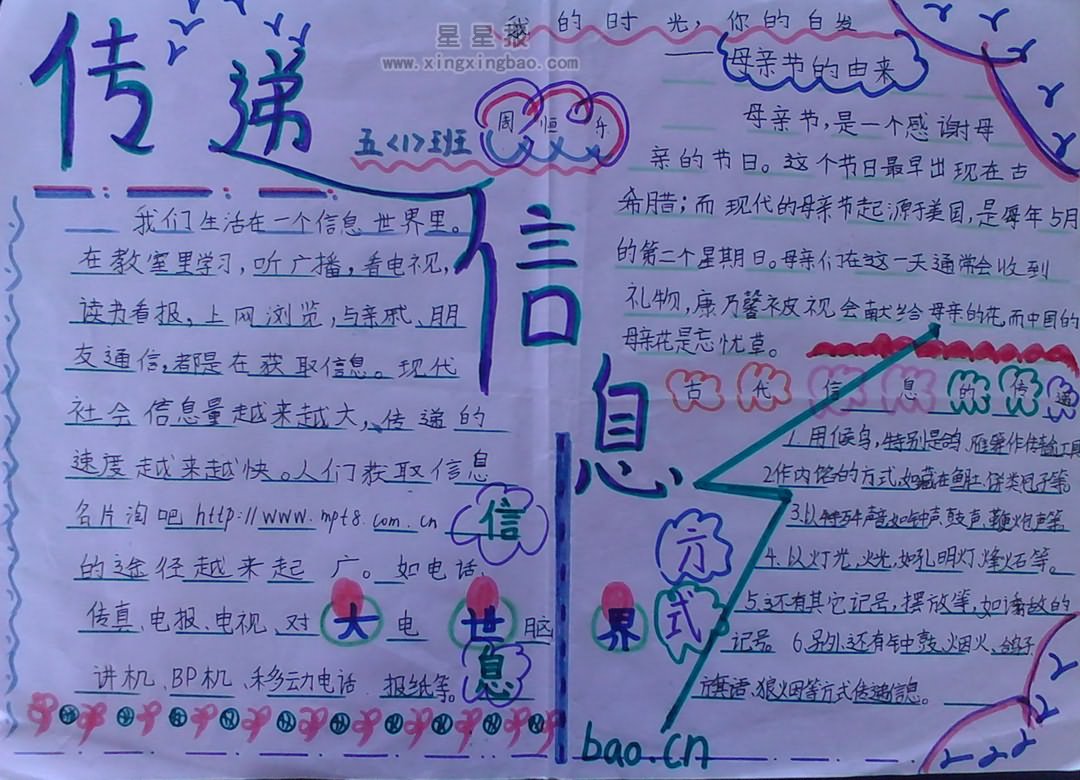 传递
信
息
星星报
www.xingxingbao.com
五<1>班班
周恒
我们生活在一个信息世界里。
在教室里学习，听广播，看电视，
读书看报，上网浏览，与亲戚、朋
友通信，都是在获取信息。现代
社会信息量越来越大，传递的
速度越来越快。人们获取信息
名片淘吧http://www.mpt8.com.cn
的途径越来起广。如电话、
传真、电报、电视、对大电世脑界
讲机、BP机、移动电话、报纸等。
信
息
我的时光，你的白发
——母亲节的由来
母亲节，是一个感谢母
亲的节日。这个节日最早出现在古
希腊；而现代的母亲节起源于美国，是每年5月
的第二个星期日。母亲们在这一天通常会收到
礼物，康乃馨被视会献给母亲的花，而中国的
母亲花是忘忧草。
古代信息的传通
方
式
1.用候鸟，特别是鸽、雁等作传输工具
2作内馅的方式，如藏在鱼肚、饼类包子等。
3.以特殊声音，如钟声、鼓声、鞭炮声等
4.以灯光，火光，如孔明灯，烽火台等。
5.还有其它记号，摆放等，如诸故的
记号。6.另外，还有钟鼓、烟火、鸽子
旗语、狼烟等方式传递信息。
bao.cn